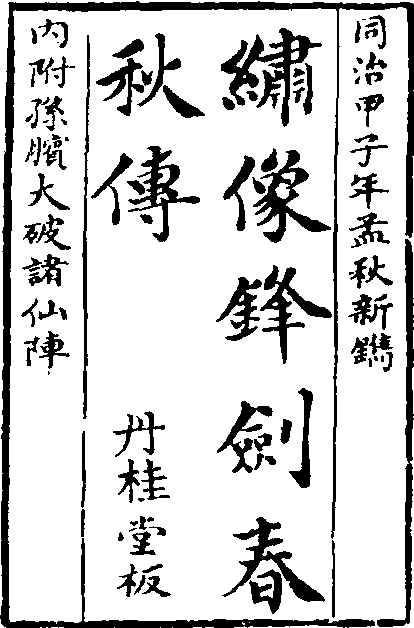 同治甲子年孟秋新鐫
繡像鋒劍春
秋傳
丹桂堂板
內附孫臏大破諸仙陣